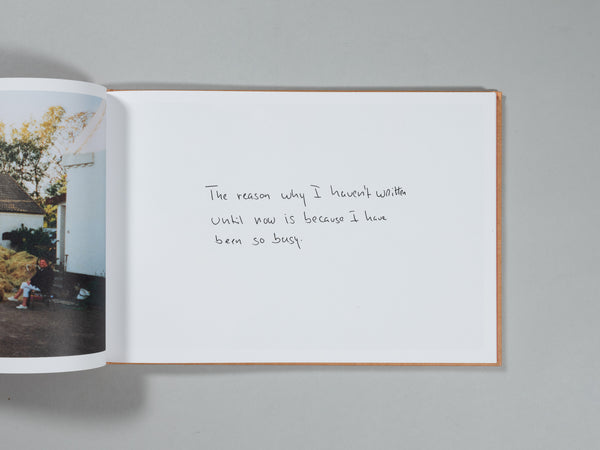 The reason why I haven't written
until now is because I have
been so busy.